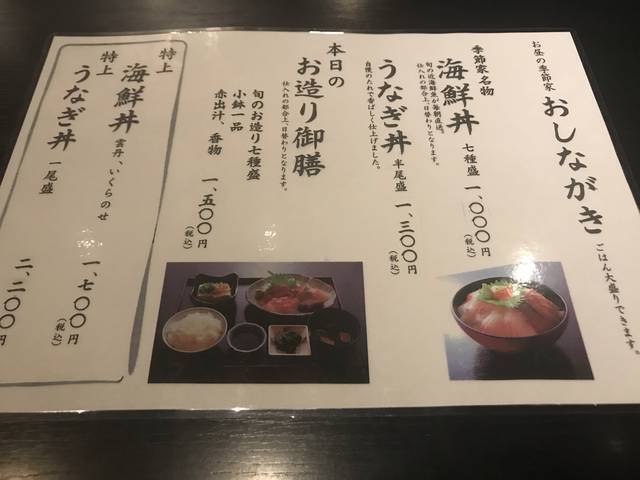 お昼の季節家
おしながき
ごはん大盛りできます。
季節家名物
海鮮丼 七種盛 一、〇〇〇円
(税込)
旬の近海鮮魚が毎朝直送。
仕入れの都合上、日替わりとなります。
うなぎ丼 半尾盛 一、三〇〇円
(税込)
自慢のたれで香ばしく仕上げました。
本日の
お造り御膳
仕入れの都合上、日替わりとなります。
旬のお造り七種盛
小鉢一品
赤出汁、香物
一、五〇〇円
(税込)
特上
海鮮丼 雲丹、いくらのせ
一、七〇〇円
(税込)
特上
うなぎ丼 一尾盛
二、二〇〇円